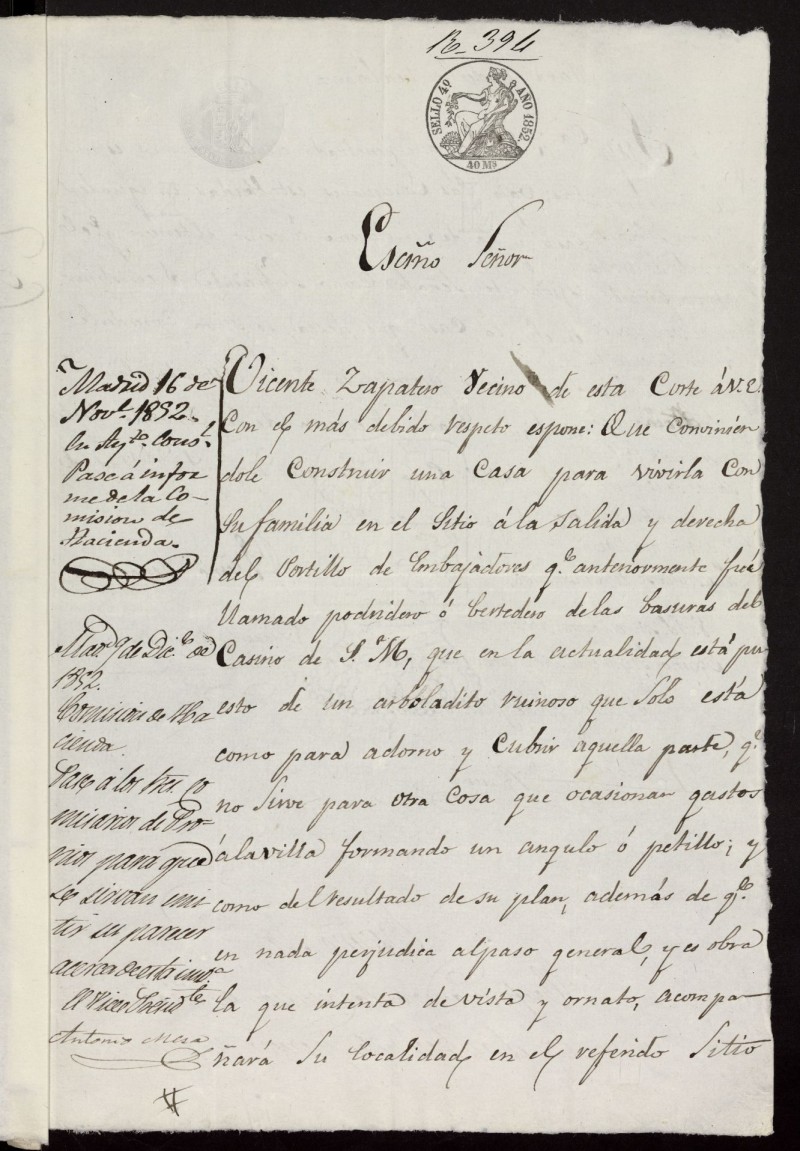 R. 394
SELLO 4º AÑO 1852.
40 Ms
Escmõ Señor
Madrid 16 de
Novᵉ. 1852.
Pase á infor
me de la Co-
mision de
Hacienda.
Vicente Zapatero Vecino de esta Corte á V.E.
Con el más debido respeto espone: Que Convinien
dole Construir una Casa para vivirla Con
Su familia en el Sitio á la Salida y derecha
del Portillo de Embajadores q.ᵉ anteriormente fué
llamado podridero ó bertedero de las basuras del
Casino de S. M, que en la actualidad está pu
esto de un arboladito ruinoso que Solo está
como para adorno y Cubrir aquella parte, q.ᵉ
no Sirve para otra Cosa que ocasionar gastos
á la villa formando un angulo ó petillo; y
como del resultado de su plan, además de q.ᵉ
en nada perjudica al paso general, y es obra
la que intenta de vista y ornato, acompa-
ñará Su localidad en el referido Sitio
Mad. 9 de Dic.ᵉ de
1852.
Comision de Ha
cienda.
Pase a los Sres. Co
misarios de Pro-
pios para que
se sirvan emi
tir su parecer
acerca de esta
El Vice Presid.ᵗᵉ
Antonio Mesa